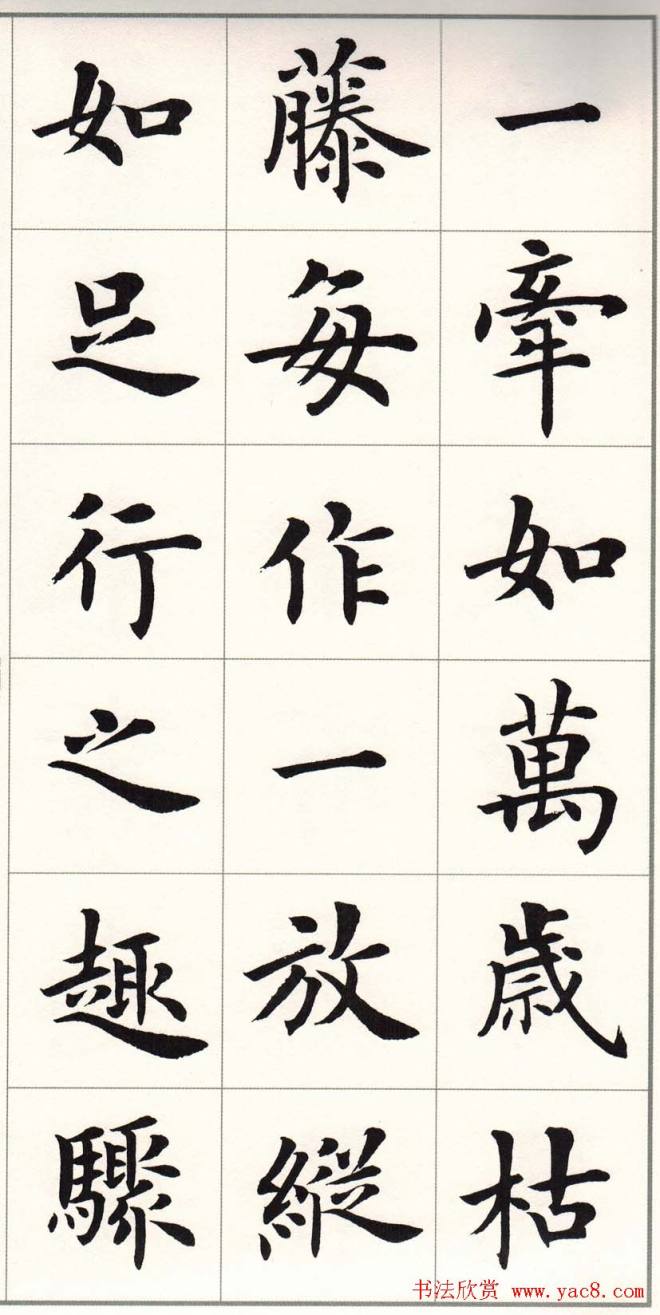 一牽如萬歲枯
藤每作一放縱
如足行之趣驟
书法欣赏 www.yac8.com